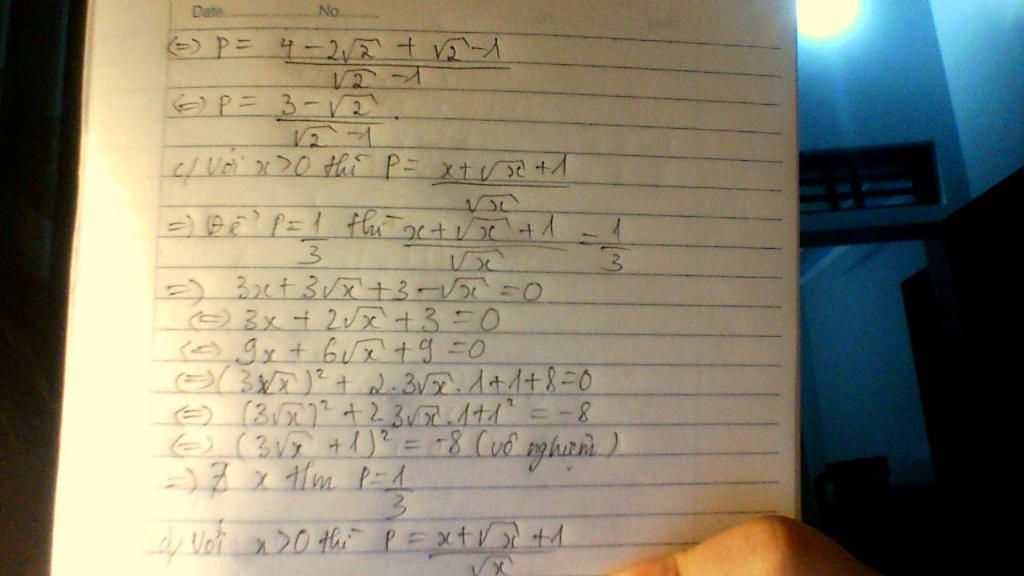 Date.................No.............
<=> P = (4 - 2√2 + √2 - 1)/(√2 - 1)
<=> P = (3 - √2)/(√2 - 1).
c/ Với x>0 thì P = (x + √x + 1)/√x
=> Để P = 1/3 thì (x + √x + 1)/√x = 1/3
=> 3x + 3√x + 3 - √x = 0
<=> 3x + 2√x + 3 = 0
<=> 9x + 6√x + 9 = 0
<=> (3√x)² + 2.3√x.1 + 1 + 8 = 0
<=> (3√x)² + 2.3√x.1 + 1² = -8
<=> (3√x + 1)² = -8 (vô nghiệm)
=> ∄ x t/m P = 1/3
d/ Với x>0 thì P = (x + √x + 1)/√x